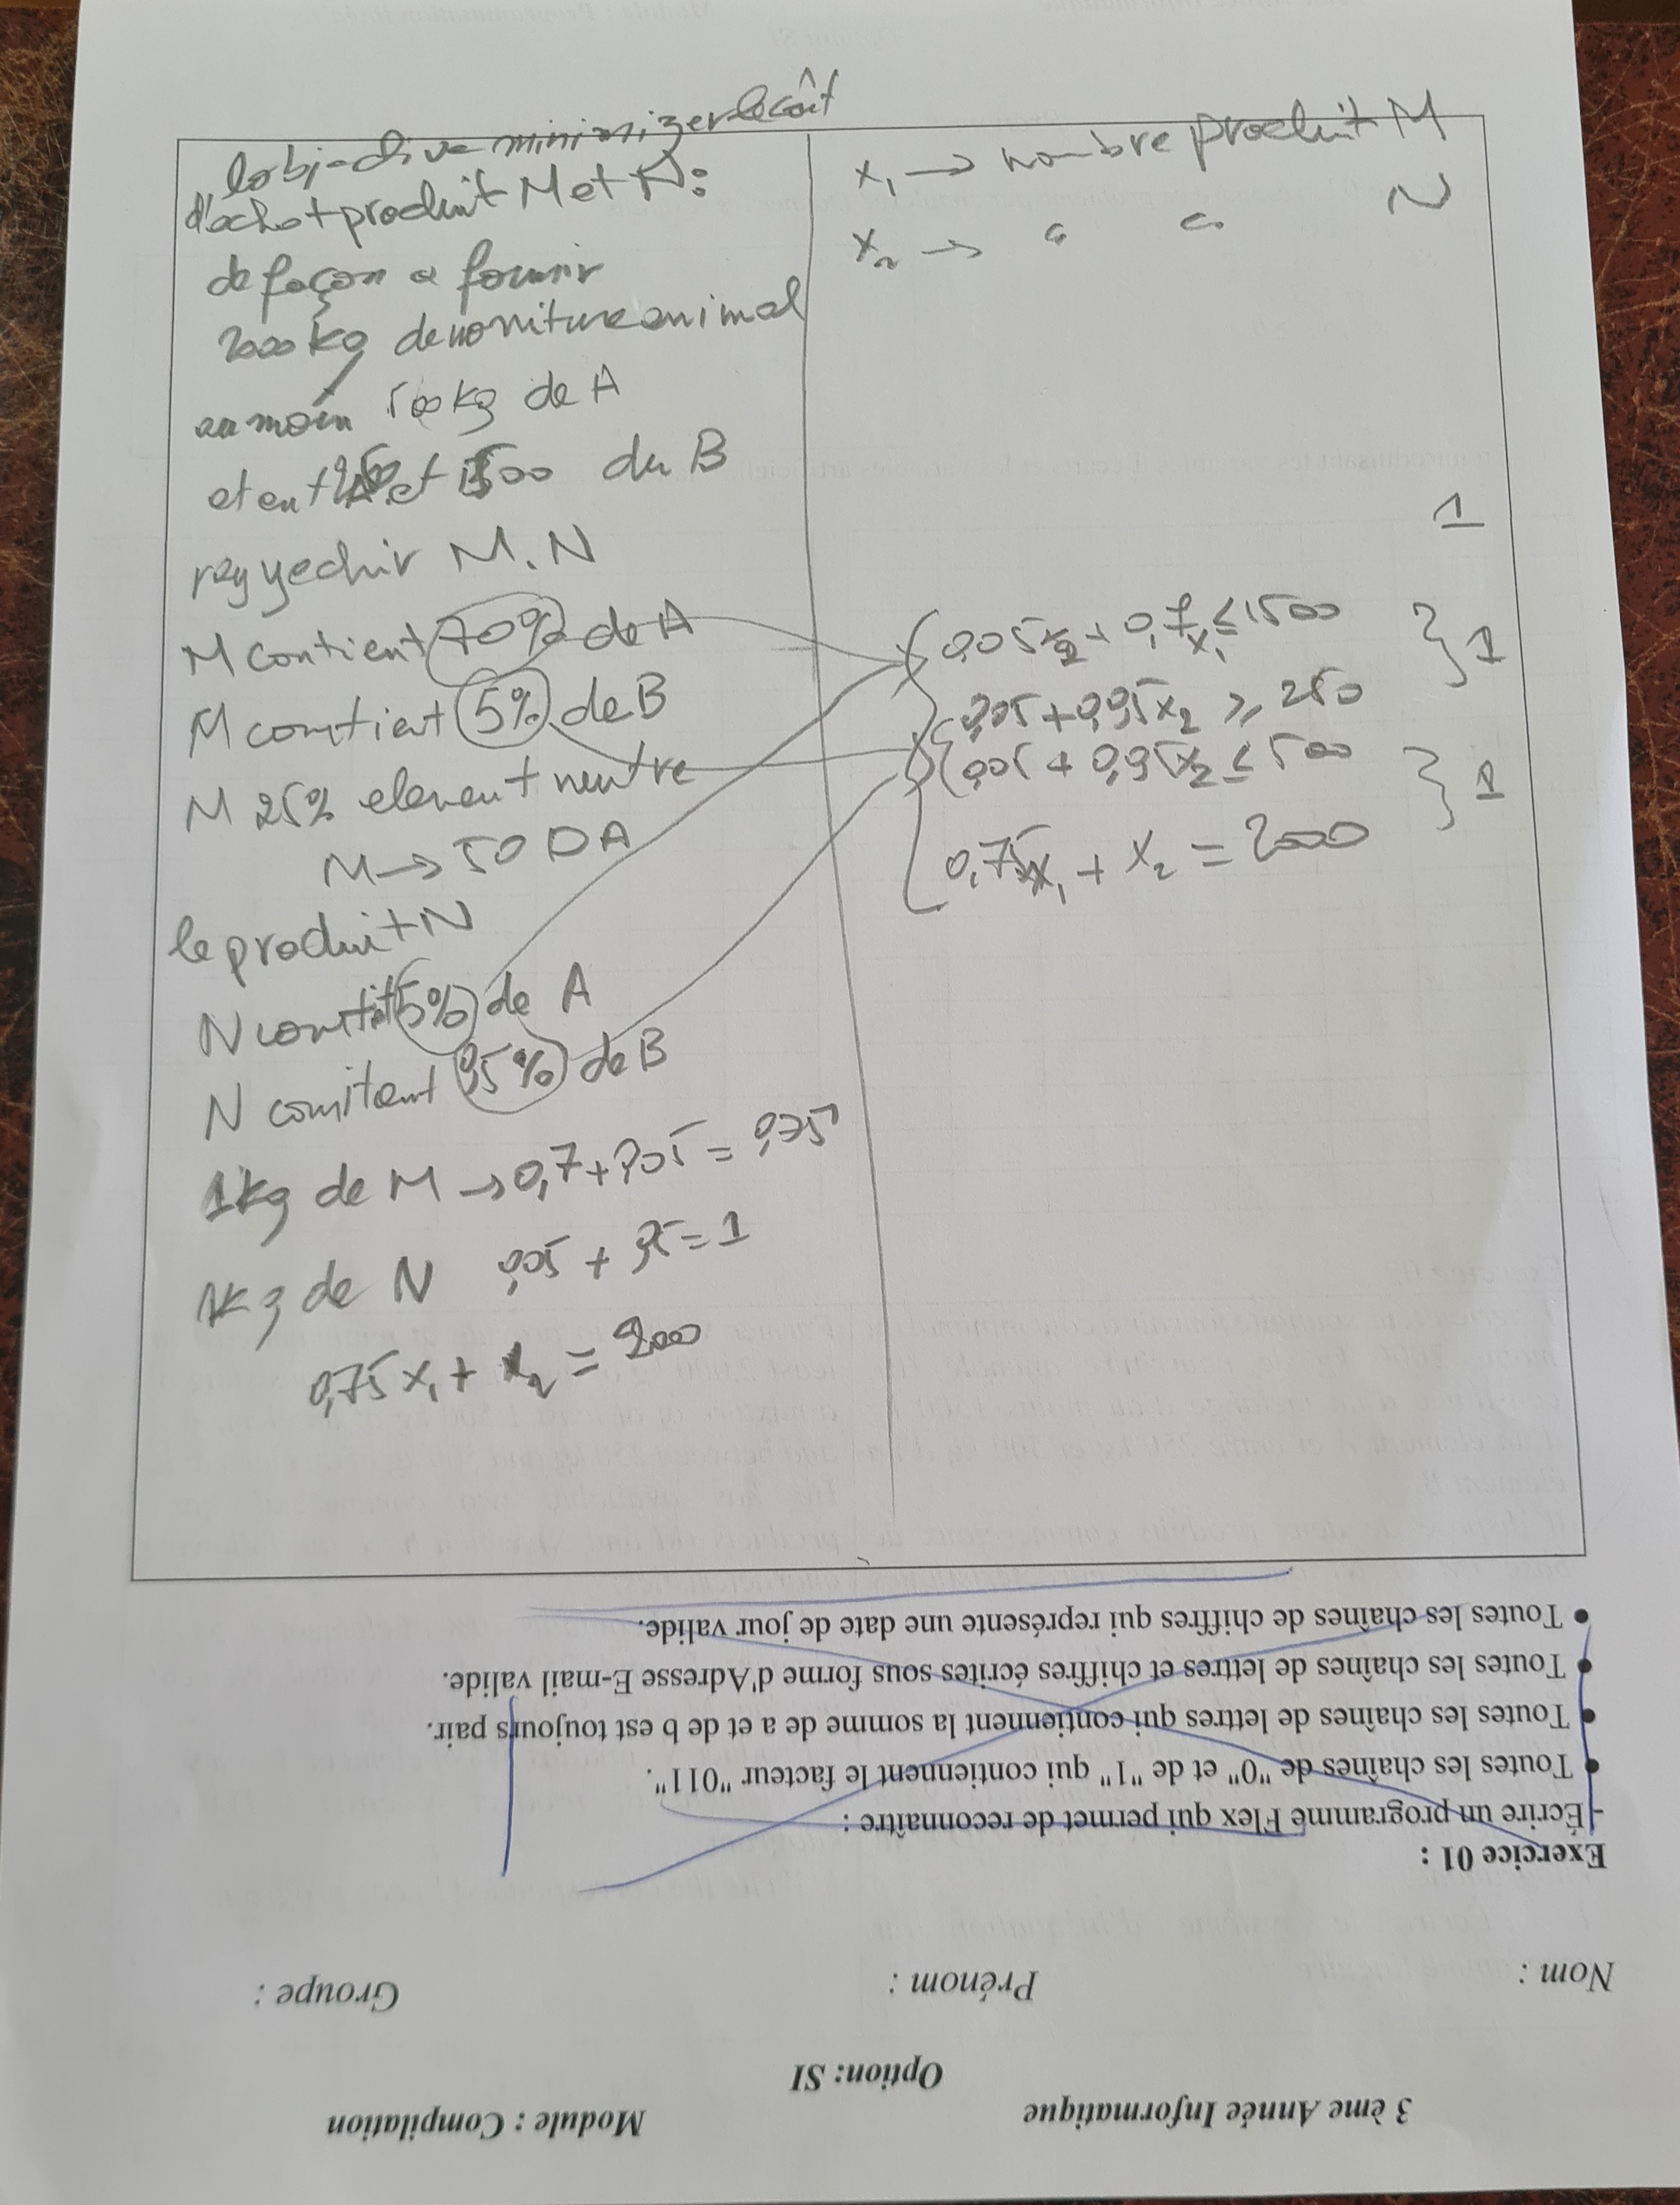 l'objective minimizer le coût
d'achat produit M et N:
de façon a fournir
2000 kg de norriture animal
au moin 1500kg de A
et ent 250 et 500 du B
M. N
M contient 70% de A
M contient 5% de B
M 25% element neutre
M → 50 DA
le produit N
N contit 5% de A
N contitent 95% de B
1kg de M → 0,7 + 0,05 = 0,75
1kg de N 0,05 + 0,95 = 1
0,75 x₁ + x₂ = 2000
x₁ → nombre produit M
x₂ → " " N
1
0,05x₂ + 0,7x₁ ≤ 1500 } 1
0,05 + 0,95x₂ ≥ 250
0,05 + 0,95x₂ ≤ 500 } 1
0,75x₁ + x₂ = 2000
3 ème Année Informatique
Module : Compilation
Option: SI
Nom :
Prénom :
Groupe :
Exercice 01 :
-Écrire un programme Flex qui permet de reconnaître :
• Toutes les chaînes de "0" et de "1" qui contiennent le facteur "011".
• Toutes les chaînes de lettres qui contiennent la somme de a et de b est toujours pair.
• Toutes les chaînes de lettres et chiffres écrites sous forme d'Adresse E-mail valide.
• Toutes les chaînes de chiffres qui représente une date de jour valide.